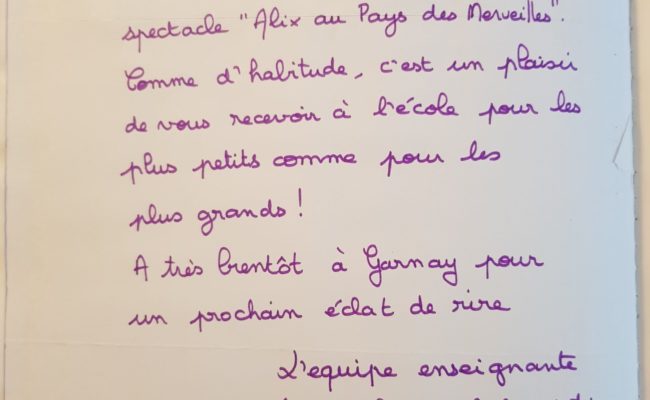 spectacle "Alix au Pays des Merveilles".
Comme d'habitude, c'est un plaisir
de vous recevoir à l'école pour les
plus petits comme pour les
plus grands !
A très bientôt à Garnay pour
un prochain éclat de rire
L'equipe enseignante